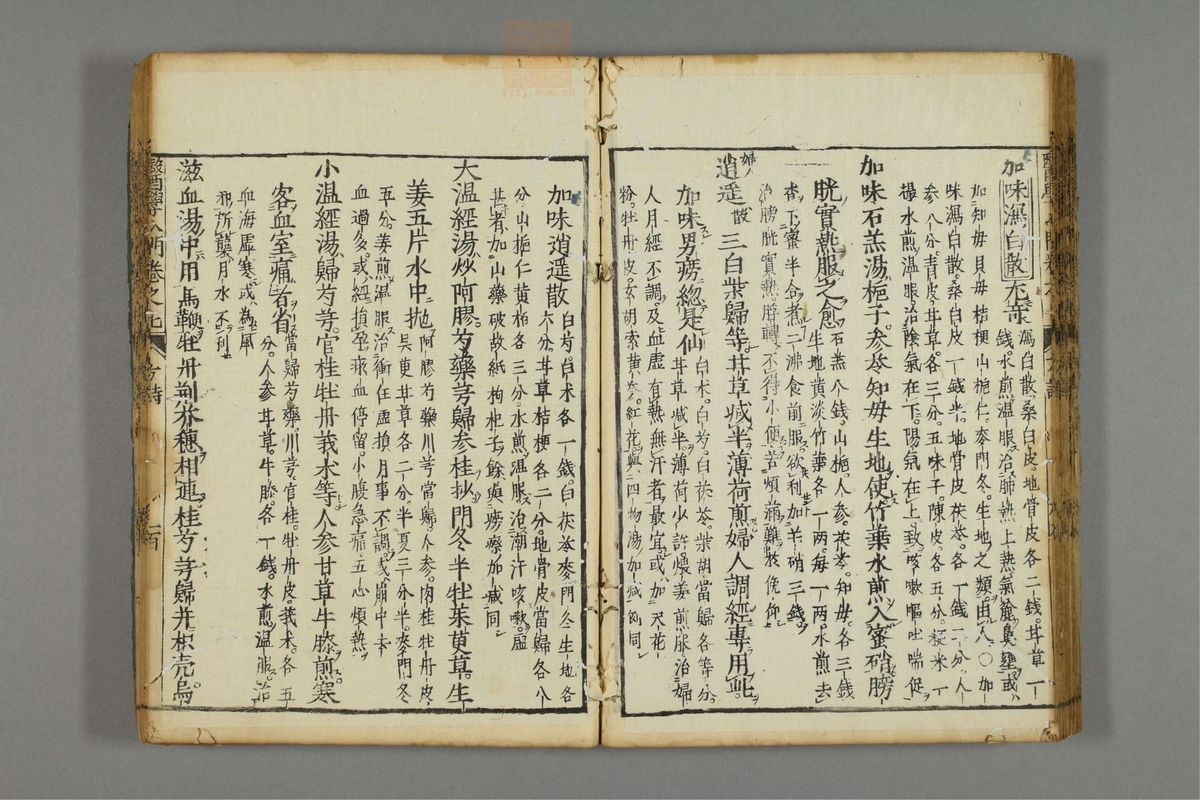 加味瀉白散
瀉白散桑白皮地骨皮各二錢甘草一
錢水煎溫服治肺熱上熱氣麄鼻壅或
加知母貝母桔梗山梔仁麥門冬生地之類由人〇加
味瀉白散桑白皮一錢半地骨皮茯苓各一錢二分人
參八分青皮甘草各三分五味子陳皮各五分粳米一
撮水煎溫服治陰氣在下陽氣在上致咳嗽嘔吐喘促
加味石羔湯梔子參苓知母生地使竹葉水煎入蜜硝膀
胱實熱服之愈
石羔八錢山梔人參茯苓知母各三錢
生地黃淡竹葉各一兩每一兩水煎去
柤下蜜半合煮二沸食前服欲利加芒硝三錢
治膀胱實熱脬轉不得小便苦煩滿難於俛仰
婦人
逍遥散三白柴歸等甘草減半薄荷煎婦人調經專用此
加味男癆總是仙
白朮白芍白茯苓柴胡當歸各等分
甘草減半薄荷少許煨姜煎服治婦
人月經不調及血虛有熱無汗者最宜或加天花
粉牡丹皮玄胡索黃芩紅花與四物湯加減例同
加味逍遥散
白芍白朮各一錢白茯苓麥門冬生地各
六分甘草桔梗各二分地骨皮當歸各八
分山梔仁黃柏各三分水煎溫服治潮汗咳嗽虛
甚者加山藥破故紙枸杞子餘與癆瘵加減同
大溫經湯炒阿膠芍藥芎歸參桂抄門冬半牡茱萸草生
姜五片水中抛
阿膠芍藥川芎當歸人參肉桂牡丹皮
吳茰甘草各二分半夏三分半麥門冬
五分姜煎溫服治衝任虛損月事不調或崩中去
血過多或經損孕瘀血停留小腹急痛五心煩熱
小溫經湯歸芍芎官桂牡丹莪朮等人參甘草牛膝煎寒
客血室痛者省
當歸芍藥川芎官桂牡丹皮莪朮各五
分人參甘草牛膝各一錢水煎溫服治
血海虛寒或為風
邪所襲月水不利
滋血湯中用馬鞭牡丹荊芥穗相連桂芍芎歸并枳壳烏
醫學入門卷之七